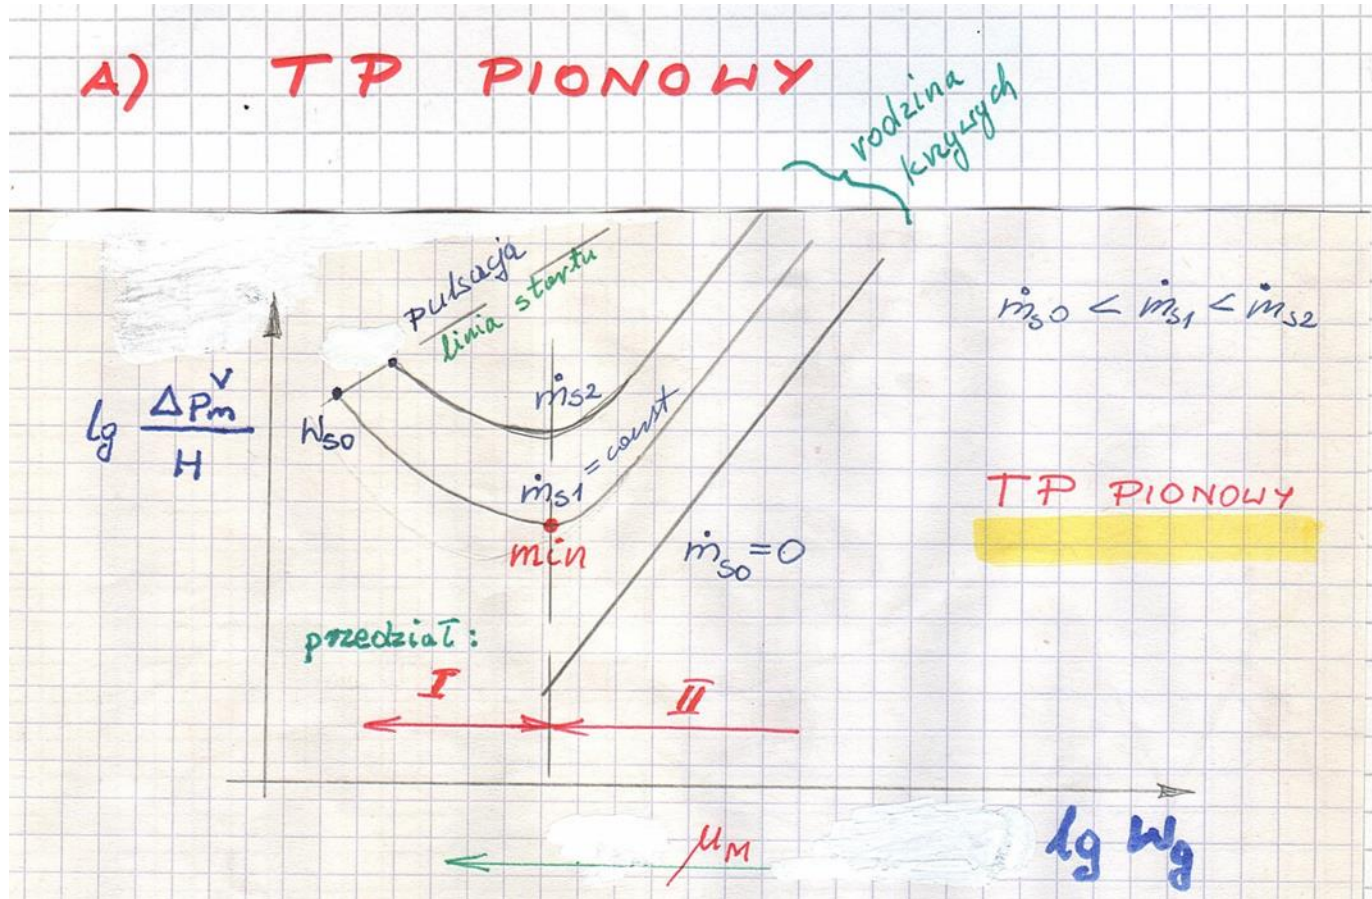 A) TP PIONOWY
rodzina
krzywych
pulsacja
linia startu
ṁs0 < ṁs1 < ṁs2
lg ΔPm^V / H
Ws0
ṁs2
ṁs1 = const
min
ṁs0 = 0
TP PIONOWY
przedział:
I
II
μM
lg Wg